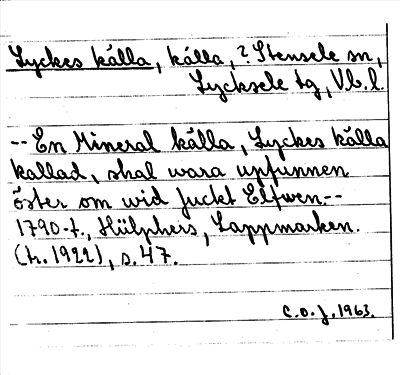 Lyckes källa, källa, ? Stensele sn,
Lycksele tg, Vb. l.
-- En Mineral källa, Lyckes källa
kallad, skal wara upfunnen
öster om wid Juckt Elfwen --
1790-t., Hülphers, Lappmarken.
(tr. 1922), s. 47.
C.O.J. 1963.